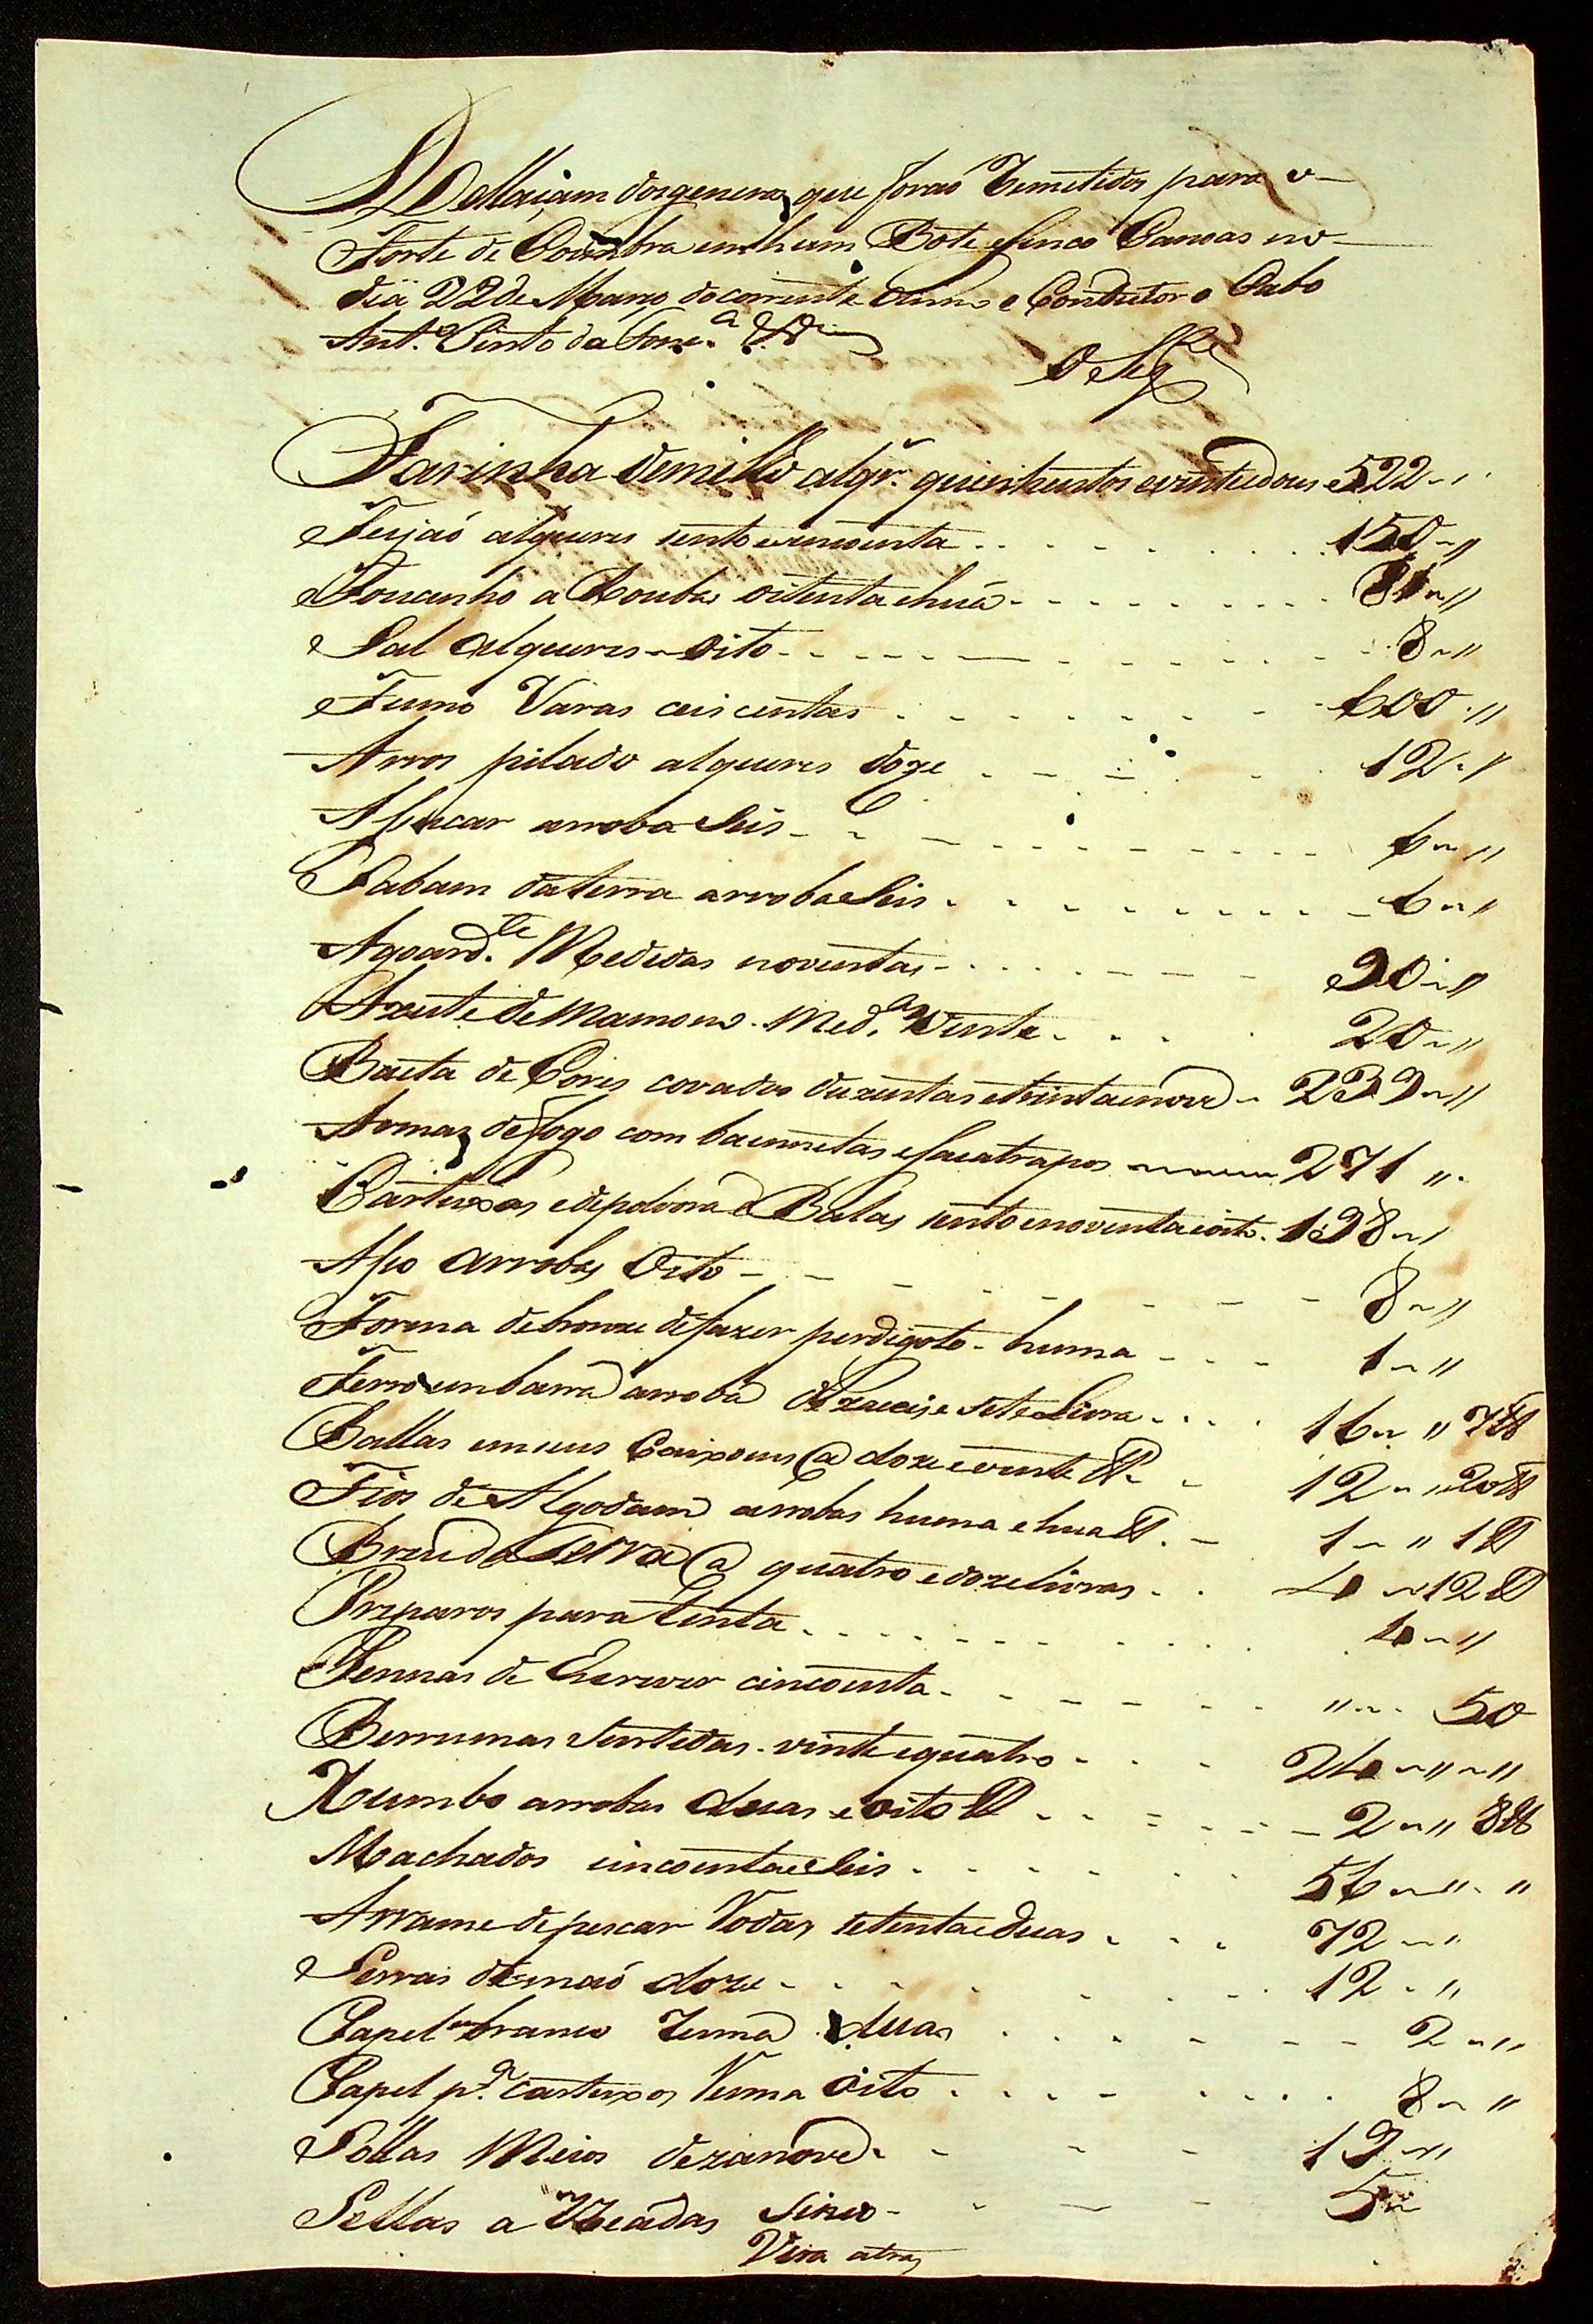 Rellaçam dos generos que foraõ Remetidos para o
Forte de Coimbra em hum Bote e sinco Canoas no
dia 22 de Março do corrente anno e Condutor o Cabo
Ant.º Pinto da Fonc.ª
O Seg.te
Farinha de milho alqr.s quinhentos e vinte dous 522
Feijaó alqueires sento e sincoenta 150
Toucinho aRoubas oitenta e huã 81
Sal alqueires oito 8
Fumo Varas ceis centas 600
Arros pilado alqueires doze 12
Assucar arroba Seis 6
Sabam da terra arrobas Seis 6
Agoard.te Medidas noventas 90
Azeite de Mamono Med.as Vinte 20
Baeta de Cores covados duzentas e trinta e nove 239
Armas de fogo com baeonetas e sacatrapos 271
Cartuxos e de polvora e Balas sento e noventa e oito 198
Asso arrobas Oito 8
Forma de bronze de fazer perdigoto huma 1
Ferro em barra arroba dezaceis e sete Livra 16 7 lb
Ballas em seus Caixoens @ doze e vinte lb 12 20 lb
Fios de Algodam arrobas huma e hua lb 1 1 lb
Breu da terra @ quatro e doze livras 4 12 lb
Preparos para tinta 4
Pennas de Escrever cincoenta 50
Berrumas Surtidas vinte e quatro 24
Xumbo arrobas duas e oito lb 2 8 lb
Machados cincoenta e Seis 56
Arrame de pescar Vodas setenta e duas 72
Serras de maó doze 12
Papel branco Rema duas 2
Papel p.ª cartuxos Rema oito 8
Sollas Meios dezanove 19
Sellas a Sinco 5
Vira atras